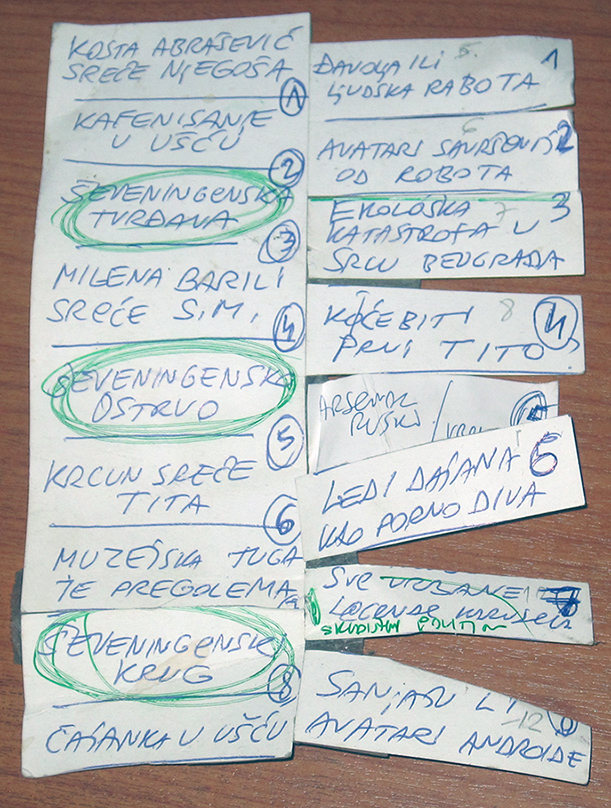 KOSTA ABRAŠEVIĆ
SREĆE NJEGOŠA
1
KAFENISANJE
U UŠĆU
2
ŠEVENINGENSKA
TVRĐAVA
3
MILENA BARILI
SREĆE S.M.
4
ŠEVENINGENSKO
OSTRVO
5
KRCUN SREĆE
TITA
6
MUZEJSKA TUGA
JE PREGOLEMA
ŠEVENINGENSKI
KRUG
8
ČAJANKA U UŠĆU
ĐAVOLJA ILI 5. 1
LJUDSKA RABOTA
6 2
AVATARI SAVRŠENIJI
OD ROBOTA
EKOLOŠKA 7 3
KATASTROFA U
SRCU BEOGRADA
KO ĆE BITI 8 4
PRVI TITO
ARSENAL
RUSKI /
LEDI DAJANA 6
KAO PORNO DIVA
SVE URBANE 7
LEGENDE
SANJAJU LI
12
AVATARI ANDROIDE